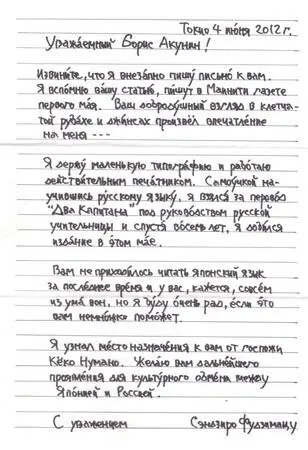 Токио 4 июня 2012 г.
Уважаемый Борис Акунин!
Извините, что я внезапно пишу письмо к вам.
Я вспомню вашу статью, пишут в Майнити газете
первого мая. Ваш добродушный взгляд в клетча-
той рубахе и джинсах произвёл впечатление
на меня ---
Я держу маленькую типографию и работаю
действительным печатником. Самоучкой на-
учившись русскому языку, я взялся за перевод
"Два Капитана" под руководством русской
учительницы и спустя восемь лет, я добился
издание в этом мае.
Вам не приходилось читать японский язык
за последнее время и у вас, кажется, совсем
из ума вон. но я буду очень рад, если это
вам немножко поможет.
Я узнал место назначения к вам от госпожи
Кёко Нумано. Желаю вам дальнейшего
проявления для культурного обмена между
Японией и Россией.
С уважением Сэндзиро Фудзимацу